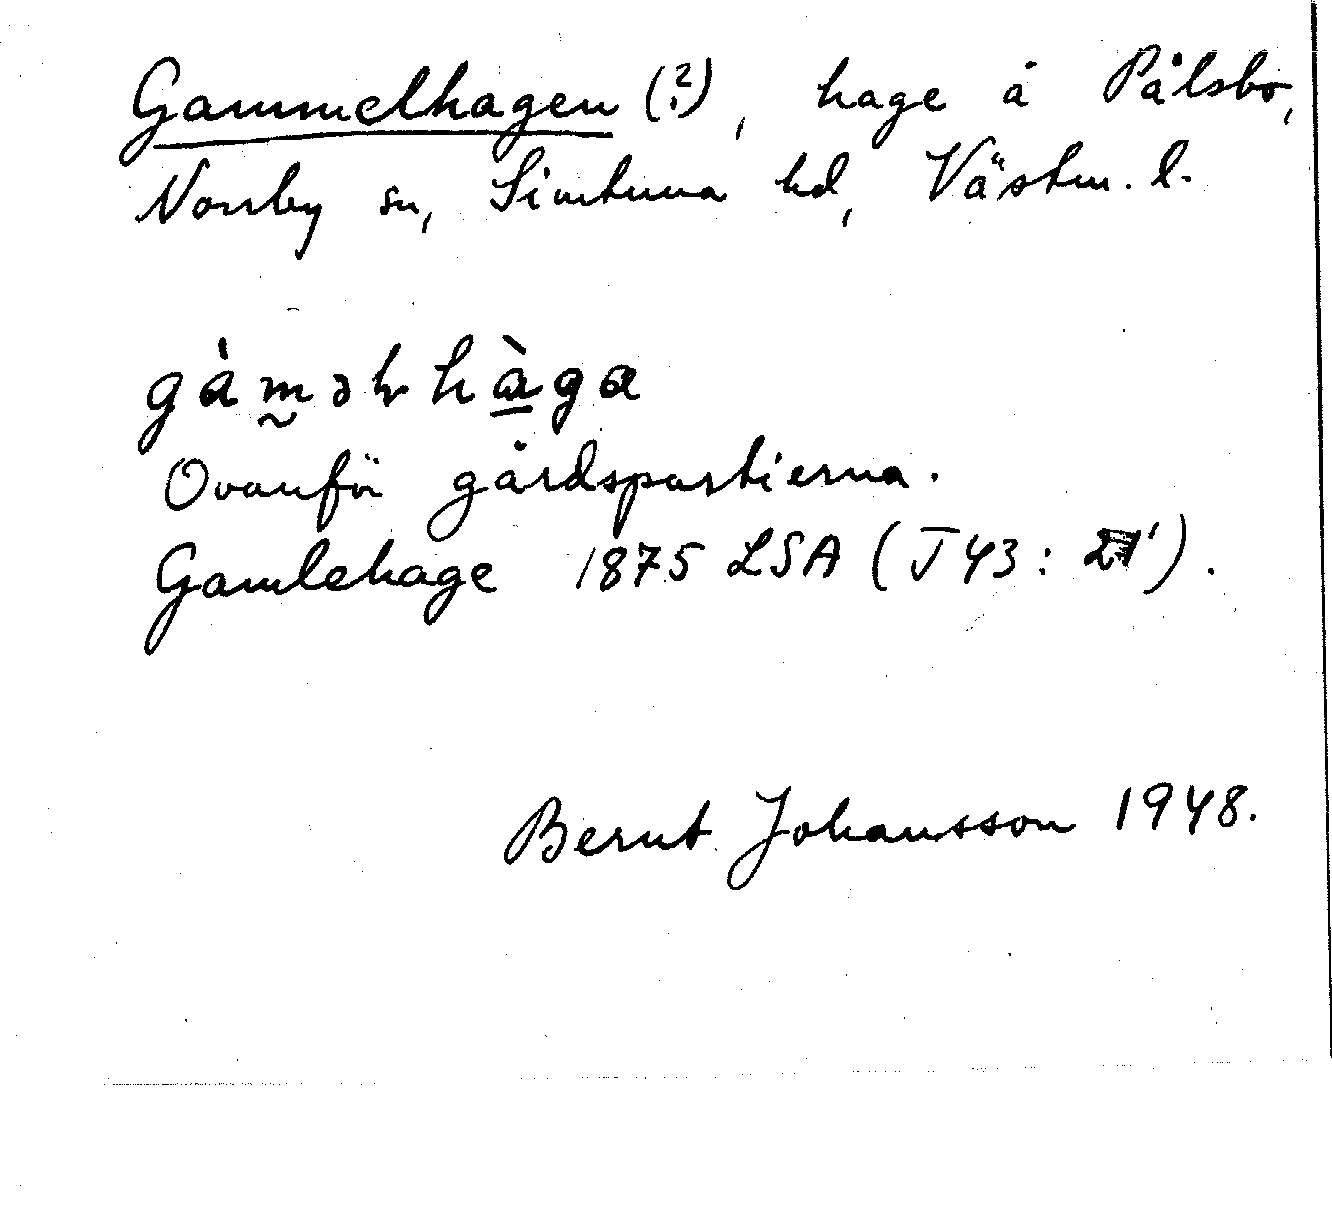 Gammelhagen (?), hage å Pålsbo,
Norrby sn, Simtuna hd, Västm. l.
gàm̰əɬhà̱ga
Ovanför gårdspartierna.
Gamlehage 1875 LSA (T43: 21').
Bernt Johansson 1948.